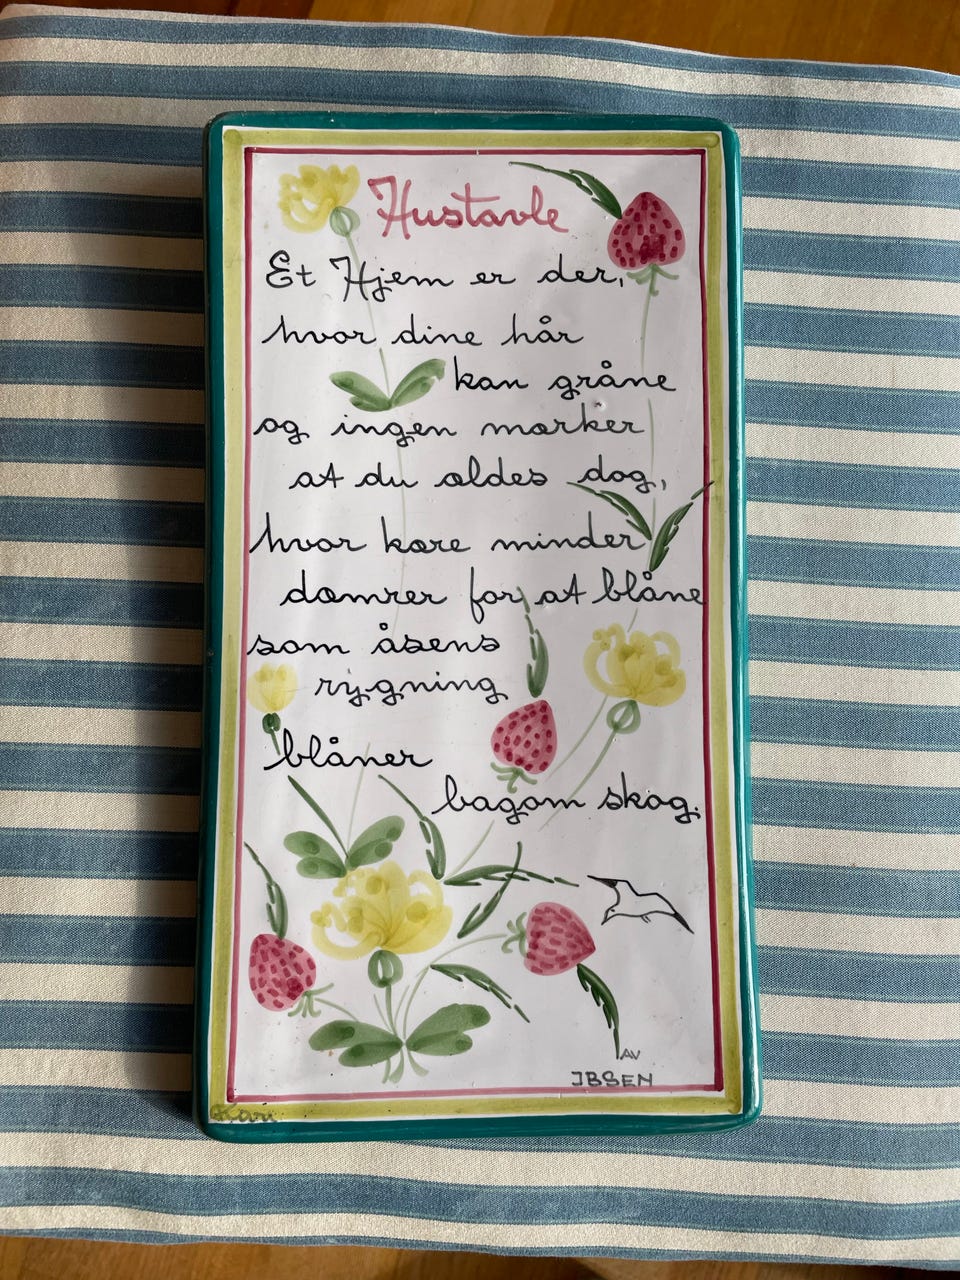 Hustavle
Et Hjem er der,
hvor dine hår
kan gråne
og ingen mærker
at du ældes dog,
hvor kære minder
dæmrer for at blåne
som åsens
rygning
blåner
bagom skog.
AV
IBSEN
Kari